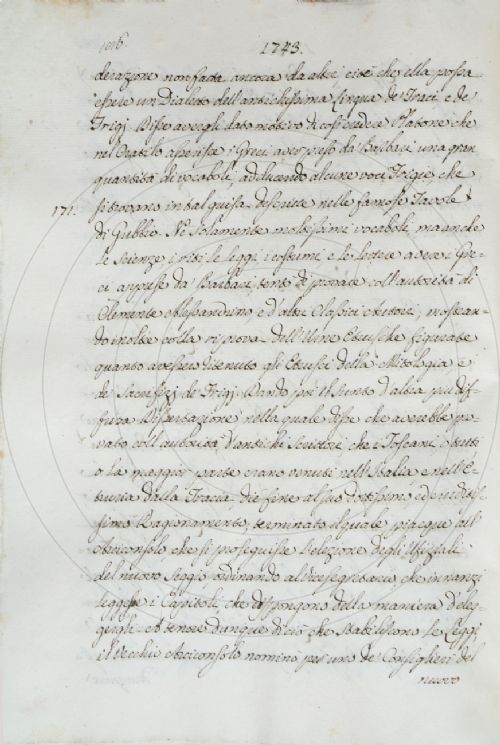 1743.
derazione non fatta ancora da altri, cioè che ella possa
essere un Dialetto dell'antichissima Lingua de' Traci e de'
Frigj. Disse avergli dato motivo di così credere Platone che
nel Cratilo asserisce i Greci aver preso da' Barbari una gran
quantità di vocaboli, adducendo alcune voci Frigie che
171. si trovano in tal guisa descritte nelle famose Tavole
di Gubbio. Nè solamente moltissimi vocaboli, ma anche
le scienze, i riti, le leggi, i costumi, e le lettere avere i Gre-
ci apprese da' Barbari, tentò di provare coll'autorità di
Clemente Alessandrino, e d'altri Classici Autori, mostran-
do inoltre colla riprova dell'Urne Etrusche figurate
quanto avessero ritenuto gli Etrusci della Mitologia e
de' Sacrifizj de' Frigj. Dando poi il sunto d'altra più dif-
fusa Dissertazione nella quale disse che averebbe pro-
vato coll'autorità d'antichi Scrittori che i Toscani o tutti
o la maggior parte erano venuti nell'Italia, e nell'E-
truria dalla Tracia, die fine al suo dottissimo ed eruditis-
simo Ragionamento, terminato il quale piacque all'
Arciconsolo, che si proseguisse l'elezione degli Ufiziali
del nuovo seggio ordinando al Vicesegretario, che innanzi
leggesse i Capitoli, che dispongono della maniera d'eleg-
gergli. A tenore dunque di ciò che stabiliscono le Leggi
il Vecchio Arciconsolo nominò per uno de' Consiglieri del
nuovo